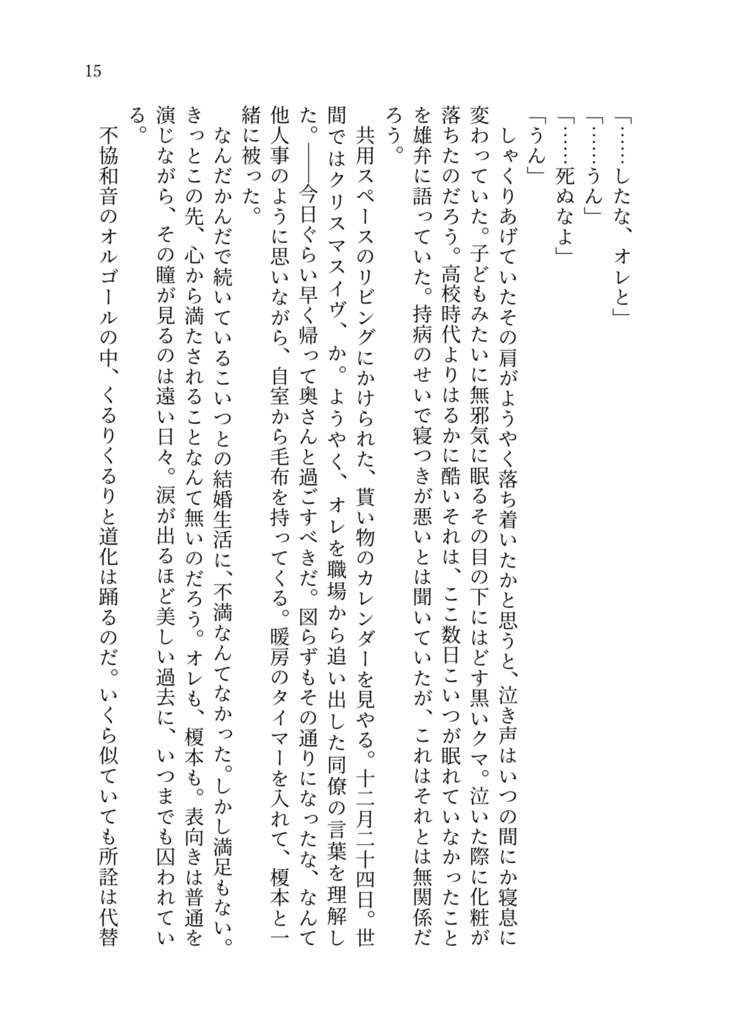 15
「……したな、オレと」
「……うん」
「……死ぬなよ」
「うん」
しゃくりあげていたその肩がようやく落ち着いたかと思うと、泣き声はいつの間にか寝息に
変わっていた。子どもみたいに無邪気に眠るその目の下にはどす黒いクマ。泣いた際に化粧が
落ちたのだろう。高校時代よりはるかに酷いそれは、ここ数日こいつが眠れていなかったこと
を雄弁に語っていた。持病のせいで寝つきが悪いとは聞いていたが、これはそれとは無関係だ
ろう。
共用スペースのリビングにかけられた、貰い物のカレンダーを見やる。十二月二十四日。世
間ではクリスマスイヴ、か。ようやく、オレを職場から追い出した同僚の言葉を理解し
た。――今日ぐらい早く帰って奥さんと過ごすべきだ。図らずもその通りになったな、なんて
他人事のように思いながら、自室から毛布を持ってくる。暖房のタイマーを入れて、榎本と一
緒に被った。
なんだかんだで続いているこいつとの結婚生活に、不満なんてなかった。しかし満足もない。
きっとこの先、心から満たされることなんて無いのだろう。オレも、榎本も。表向きは普通を
演じながら、その瞳が見るのは遠い日々。涙が出るほど美しい過去に、いつまでも囚われてい
る。
不協和音のオルゴールの中、くるりくるりと道化は踊るのだ。いくら似ていても所詮は代替